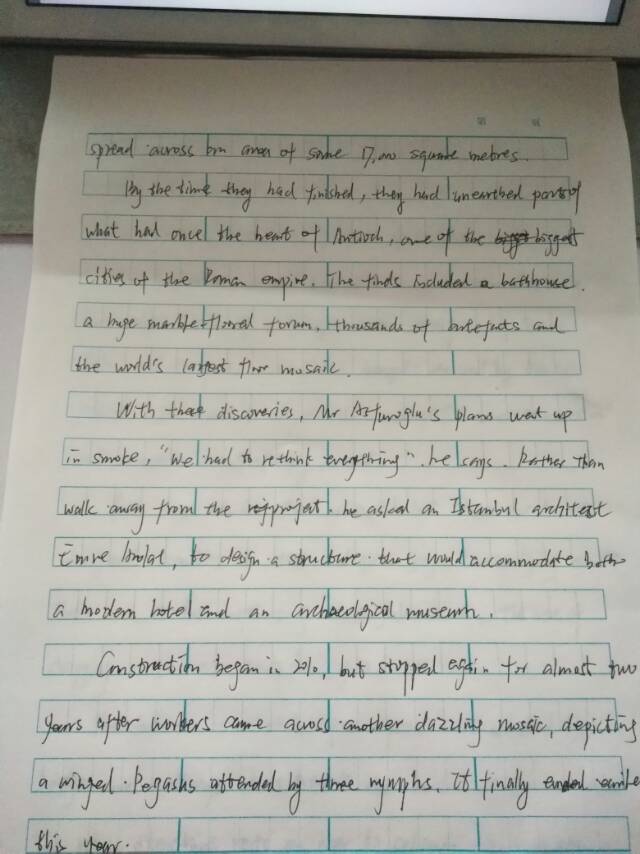 spread across an area of some 17,000 square metres.
By the time they had finished, they had unearthed parts of
what had once the heart of Antioch, one of the biggest
cities of the Roman empire. The finds included a bathhouse.
a huge marble-floored forum, thousands of artefacts and
the world's largest floor mosaic.
With these discoveries, Mr Asfuroglu's plans went up
in smoke, "We had to rethink everything". he says. Rather than
walk away from the project. he asked an Istanbul architect
Emre Arolat, to design a structure that would accommodate both
a modern hotel and an archaeological museum.
Construction began in 2010, but stopped again for almost two
years after workers came across another dazzling mosaic, depicting
a winged Pegasus attended by three nymphs. It finally ended
this year.